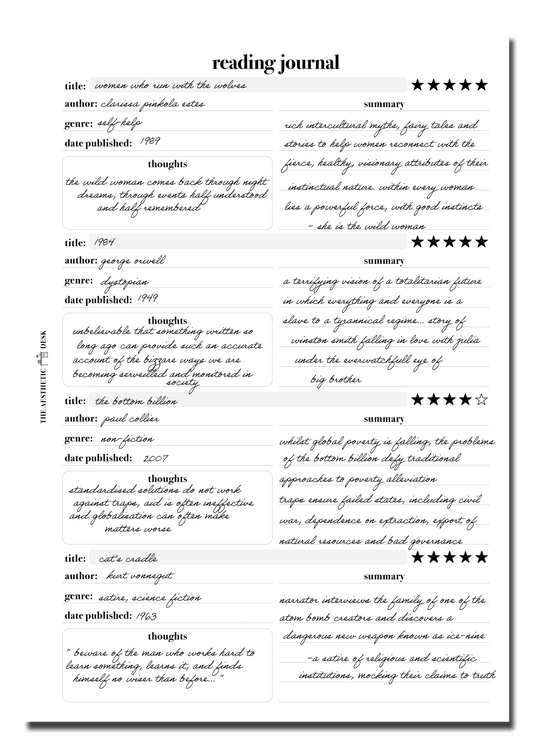 reading journal
title: women who run with the wolves
author: clarissa pinkola estes
genre: self-help
date published: 1989
thoughts
the wild woman comes back through night
dreams, through events half understood
and half remembered
summary
rich intercultural myths, fairy tales and
stories to help women reconnect with the
fierce, healthy, visionary attributes of their
instinctual nature. within every woman
lies a powerful force, with good instincts
- she is the wild woman
title: 1984
author: george orwell
genre: dystopian
date published: 1949
thoughts
unbelievable that something written so
long ago can provide such an accurate
account of the bizzare ways we are
becoming serveilled and monitored in
society
summary
a terrifying vision of a totalitarian future
in which everything and everyone is a
slave to a tyrannical regime... story of
winston smith falling in love with julia
under the everwatchfull eye of
big brother
title: the bottom billion
author: paul collier
genre: non-fiction
date published: 2007
thoughts
standardised solutions do not work
against traps, aid is often ineffective
and globalisation can often make
matters worse
summary
whilst global poverty is falling, the problems
of the bottom billion defy traditional
approaches to poverty alleviation
traps ensure failed states, including civil
war, dependence on extraction, export of
natural resources and bad governance
title: cat's cradle
author: kurt vonnegut
genre: satire, science fiction
date published: 1963
thoughts
" beware of the man who works hard to
learn something, learns it, and finds
himself no wiser than before... "
summary
narrator interviews the family of one of the
atom bomb creators and discovers a
dangerous new weapon known as ice-nine
-a satire of religious and scientific
institutions, mocking their claims to truth
THE AESTHETIC DESK